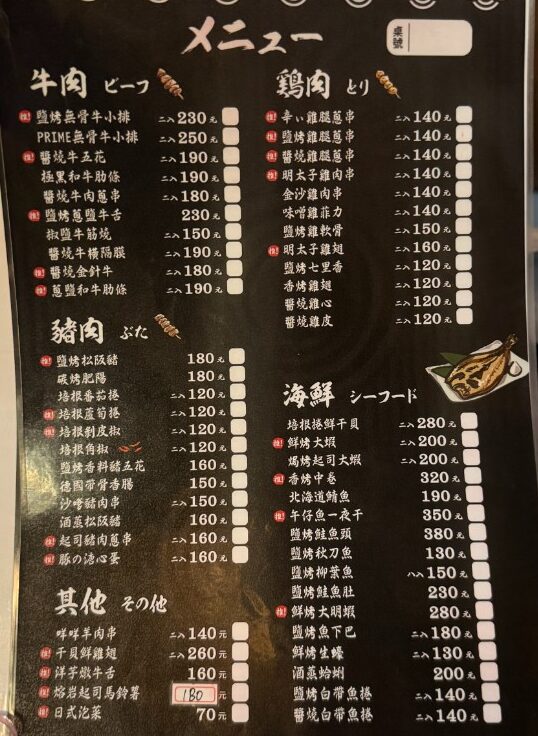 メニュー
桌號
牛肉 ビーフ
推! 鹽烤無骨牛小排 二入230元
PRIME無骨牛小排 二入250元
推! 醬燒牛五花 二入190元
極黑和牛肋條 二入190元
醬燒牛肉蔥串 二入180元
推! 鹽烤蔥鹽牛舌 230元
椒鹽牛筋燒 二入150元
醬燒牛橫隔膜 二入190元
推! 醬燒金針牛 二入180元
推! 蔥鹽和牛肋條 二入190元
豬肉 ぶた
推! 鹽烤松阪豬 180元
碳烤肥腸 180元
培根番茄捲 二入120元
推! 培根蘆筍捲 二入120元
推! 培根剝皮椒 二入120元
培根角椒 二入120元
鹽烤香料豬五花 160元
德國帶骨香腸 150元
沙嗲豬肉串 二入150元
酒蒸松阪豬 160元
推! 起司豬肉蔥串 二入160元
推! 豚の溏心蛋 二入160元
其他 その他
咩咩羊肉串 二入140元
推! 干貝鮮雞翅 二入260元
推! 洋芋燉牛舌 160元
推! 熔岩起司馬鈴薯 180元
推! 日式泡菜 70元
鶏肉 とり
推! 辛い雞腿蔥串 二入140元
推! 鹽烤雞腿蔥串 二入140元
推! 醬燒雞腿蔥串 二入140元
推! 明太子雞肉串 二入140元
金沙雞肉串 二入140元
味噌雞菲力 二入140元
鹽烤雞軟骨 二入150元
推! 明太子雞翅 二入160元
鹽烤七里香 二入120元
香烤雞翅 二入120元
醬燒雞心 二入120元
醬燒雞皮 二入120元
海鮮 シーフード
培根捲鮮干貝 二入280元
推! 鮮烤大蝦 二入200元
焗烤起司大蝦 二入200元
推! 香烤中卷 320元
北海道鯖魚 190元
推! 午仔魚一夜干 350元
鹽烤鮭魚頭 380元
鹽烤秋刀魚 130元
鹽烤柳葉魚 八入150元
鹽烤鮭魚肚 230元
推! 鮮烤大明蝦 280元
鹽烤魚下巴 二入180元
鮮烤生蠔 二入130元
酒蒸蛤蜊 200元
鹽烤白帶魚捲 二入140元
醬燒白帶魚捲 二入140元